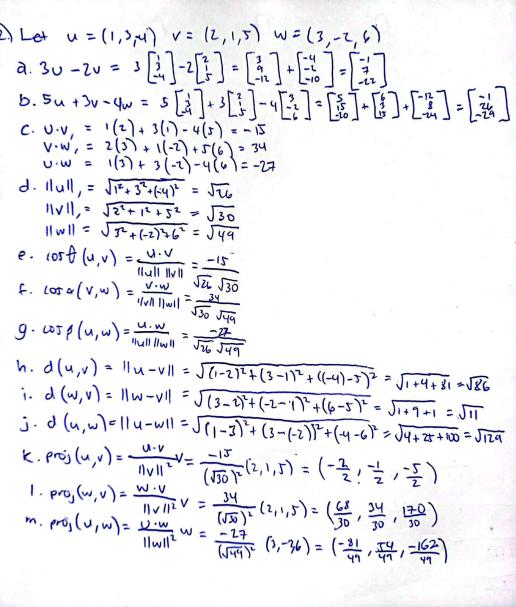 2) Let u = (1,3,-4) v = (2,1,5) w = (3,-2,6)
a. 3u - 2v = 3[1 3 -4] - 2[2 1 5] = [3 9 -12] + [-4 -2 -10] = [-1 7 -22]
b. 5u + 3v - 4w = 5[1 3 -4] + 3[2 1 5] - 4[3 -2 6] = [5 15 -20] + [6 3 15] + [-12 8 -24] = [-1 26 -29]
c. u·v, = 1(2) + 3(1) - 4(5) = -15
v·w, = 2(3) + 1(-2) + 5(6) = 34
u·w = 1(3) + 3(-2) - 4(6) = -27
d. ||u||, = √1² + 3² + (-4)² = √26
||v||, = √2² + 1² + 5² = √30
||w|| = √3² + (-2)² + 6² = √49
e. cos θ (u,v) = u·v / ||u|| ||v|| = -15 / √26 √30
f. cos α (v,w) = v·w / ||v|| ||w|| = 34 / √30 √49
g. cos β (u,w) = u·w / ||u|| ||w|| = -27 / √26 √49
h. d(u,v) = ||u-v|| = √(1-2)² + (3-1)² + ((-4)-5)² = √1+4+81 = √86
i. d(w,v) = ||w-v|| = √(3-2)² + (-2-1)² + (6-5)² = √1+9+1 = √11
j. d(u,w) = ||u-w|| = √(1-3)² + (3-(-2))² + (-4-6)² = √4+25+100 = √129
k. proj(u,v) = u·v / ||v||² v = -15 / (√30)² (2,1,5) = (-2/2, -1/2, -5/2)
l. proj(w,v) = w·v / ||v||² v = 34 / (√30)² (2,1,5) = (68/30, 34/30, 170/30)
m. proj(u,w) = u·w / ||w||² w = -27 / (√49)² (3,-26) = (-81/49, 54/49, -162/49)